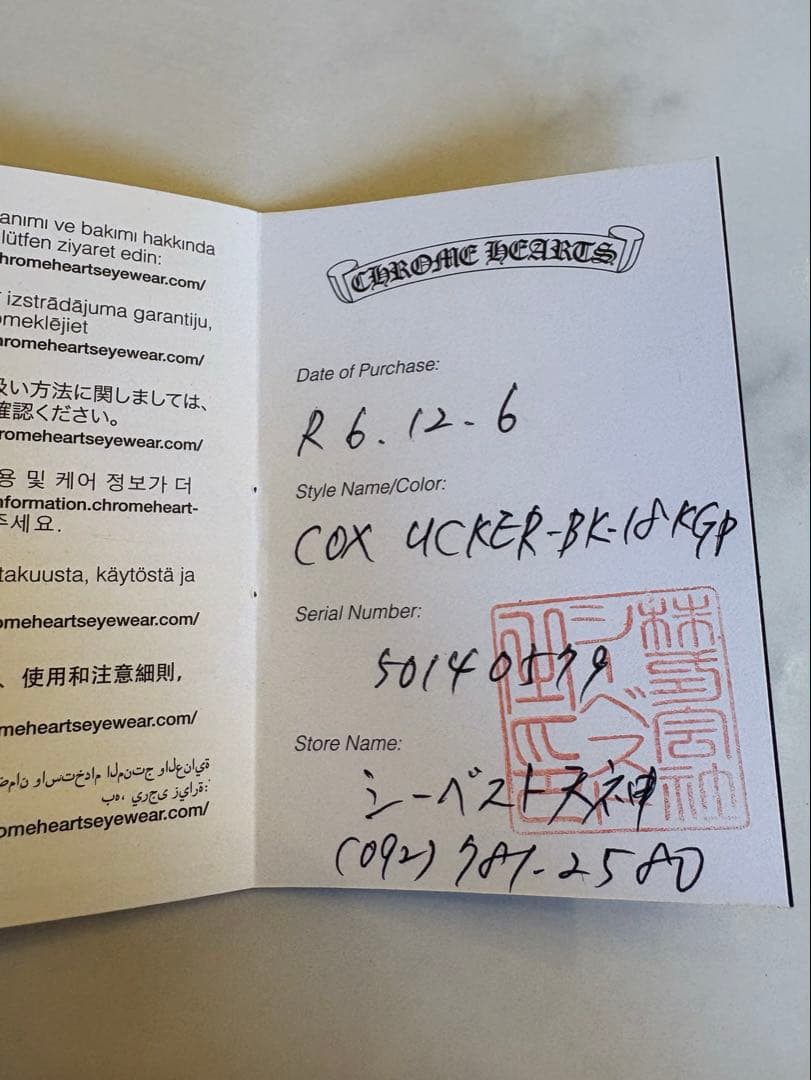 anımı ve bakımı hakkında
lütfen ziyaret edin:
hromeheartseyewear.com/
izstrādājuma garantiju,
meklējiet
hromeheartseyewear.com/
扱い方法に関しましては、
確認ください。
romeheartseyewear.com/
용 및 케어 정보가 더
nformation.chromeheart-
주세요.
takuusta, käytöstä ja
omeheartseyewear.com/
、使用和注意細則,
meheartseyewear.com/
ضمان واستخدام المنتج والعناية
به، يرجى زيارة:
omeheartseyewear.com/
CHROME HEARTS
Date of Purchase:
R 6.12-6
Style Name/Color:
COX UCKER-BK-18KGP
Serial Number:
50140579
Store Name:
シーベスト天神
(092) 781-2580
株式会社
シーベスト